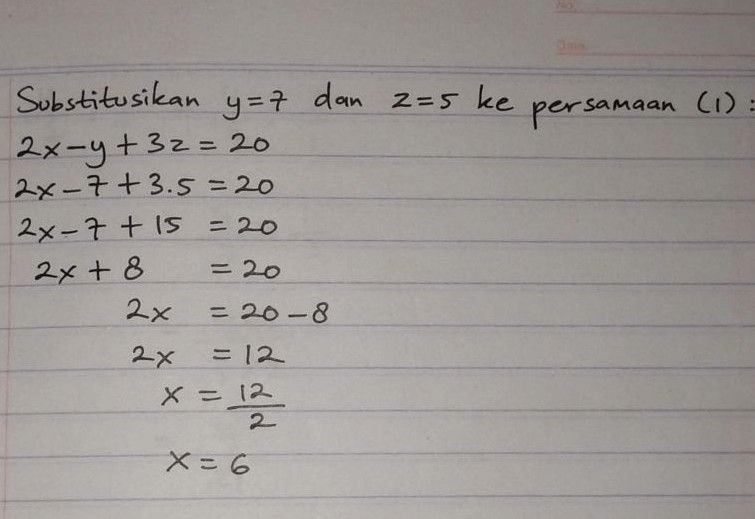 No.
Date.
Substitusikan y=7 dan z=5 ke persamaan (1) :
2x-y+3z = 20
2x-7+3.5 = 20
2x-7+15 = 20
2x+8 = 20
2x = 20-8
2x = 12
x = 12/2
x = 6